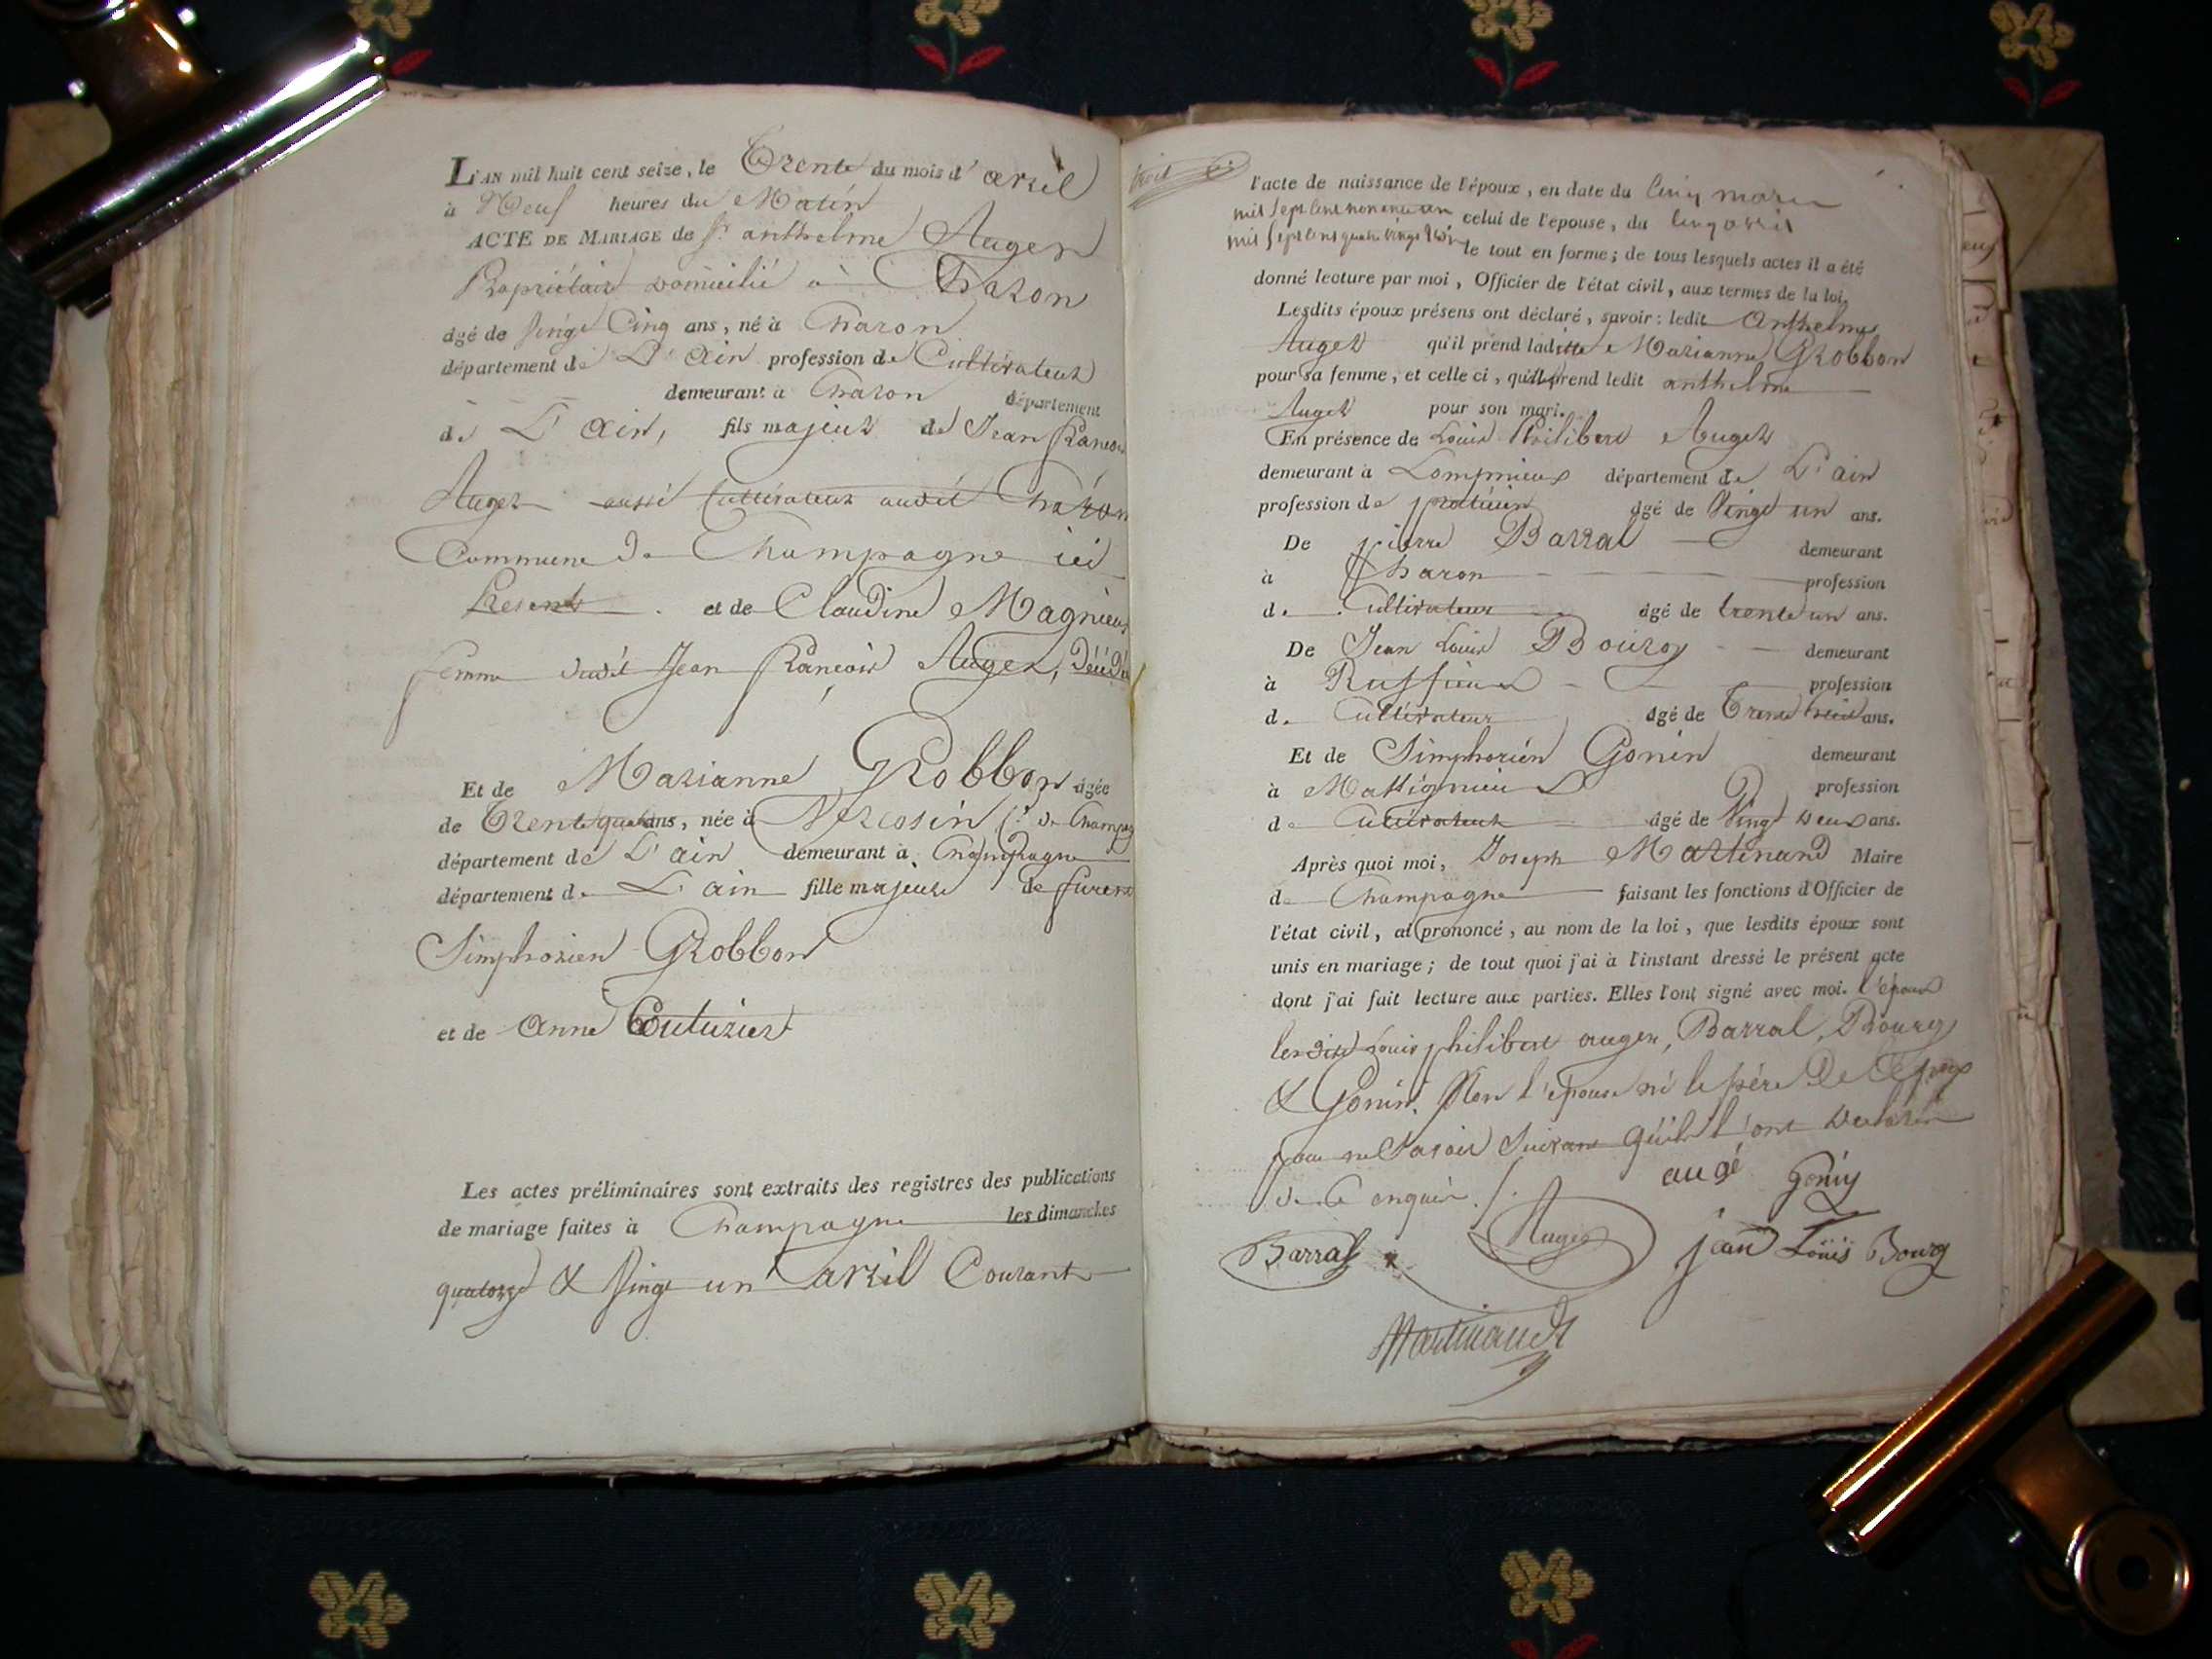 L'AN mil huit cent seize, le Trente du mois d'avril
à Neuf heures du Matin
ACTE DE MARIAGE de Sr. anthelme Auger
Propriétaire domicilié à Charon
âgé de vingt Cinq ans, né à Charon
département de L'Ain profession de Cultivateur
demeurant à Charon département
de L'Ain, fils majeur de Jean François
Auger aussi Cultivateur audit Charon
Commune de Champagne ici
Present et de Claudine Magnieux
femme dudit Jean François Auger, décédée
Et de Marianne Grobbon âgée
de Trente quatre ans, née à Vercosin Cne de Champag
département de L'ain demeurant à Champagne
département de L'ain fille majeure de furent
Simphorien Grobbon
et de Anne Couturier
Les actes préliminaires sont extraits des registres des publications
de mariage faites à Champagne les dimanches
quatorze & vingt un avril Courant
l'acte de naissance de l'époux, en date du cinq mars
mil sept cent nonante un celui de l'epouse, du cinq avril
mil sept cent quatre vingt trois le tout en forme; de tous lesquels actes il a été
donné lecture par moi, Officier de l'état civil, aux termes de la loi.
Lesdits époux présens ont déclaré, savoir: ledit Anthelme
Auger qu'il prend ladite Marianne Grobbon
pour sa femme, et celle ci, qu'elle prend ledit anthelme
Auger pour son mari.
En présence de Louis Philibert Auger
demeurant à Lompnieux département de L'ain
profession de praticien âgé de Vingt un ans.
De pierre Barral demeurant
à Charon profession
de Cultivateur âgé de trente un ans.
De Jean Louis Bourg demeurant
à Ruffieux profession
de Cultivateur âgé de Trente trois ans.
Et de Simphorien Gonin demeurant
à Massignieux profession
de Cultivateur âgé de Vingt deux ans.
Après quoi moi, Joseph Martinand Maire
de Champagne faisant les fonctions d'Officier de
l'état civil, ai prononcé, au nom de la loi, que lesdits époux sont
unis en mariage; de tout quoi j'ai à l'instant dressé le présent acte
dont j'ai fait lecture aux parties. Elles l'ont signé avec moi. L'époux
lesdits Louis philibert auger, Barral, Bourg
& Gonin. Non l'épouse ni le père de l'époux
pour ne savoir suivant qu'ils l'ont déclaré
de ce enquis.
augé Goniy
Barral Auger jean Louis Bourg
Martinand